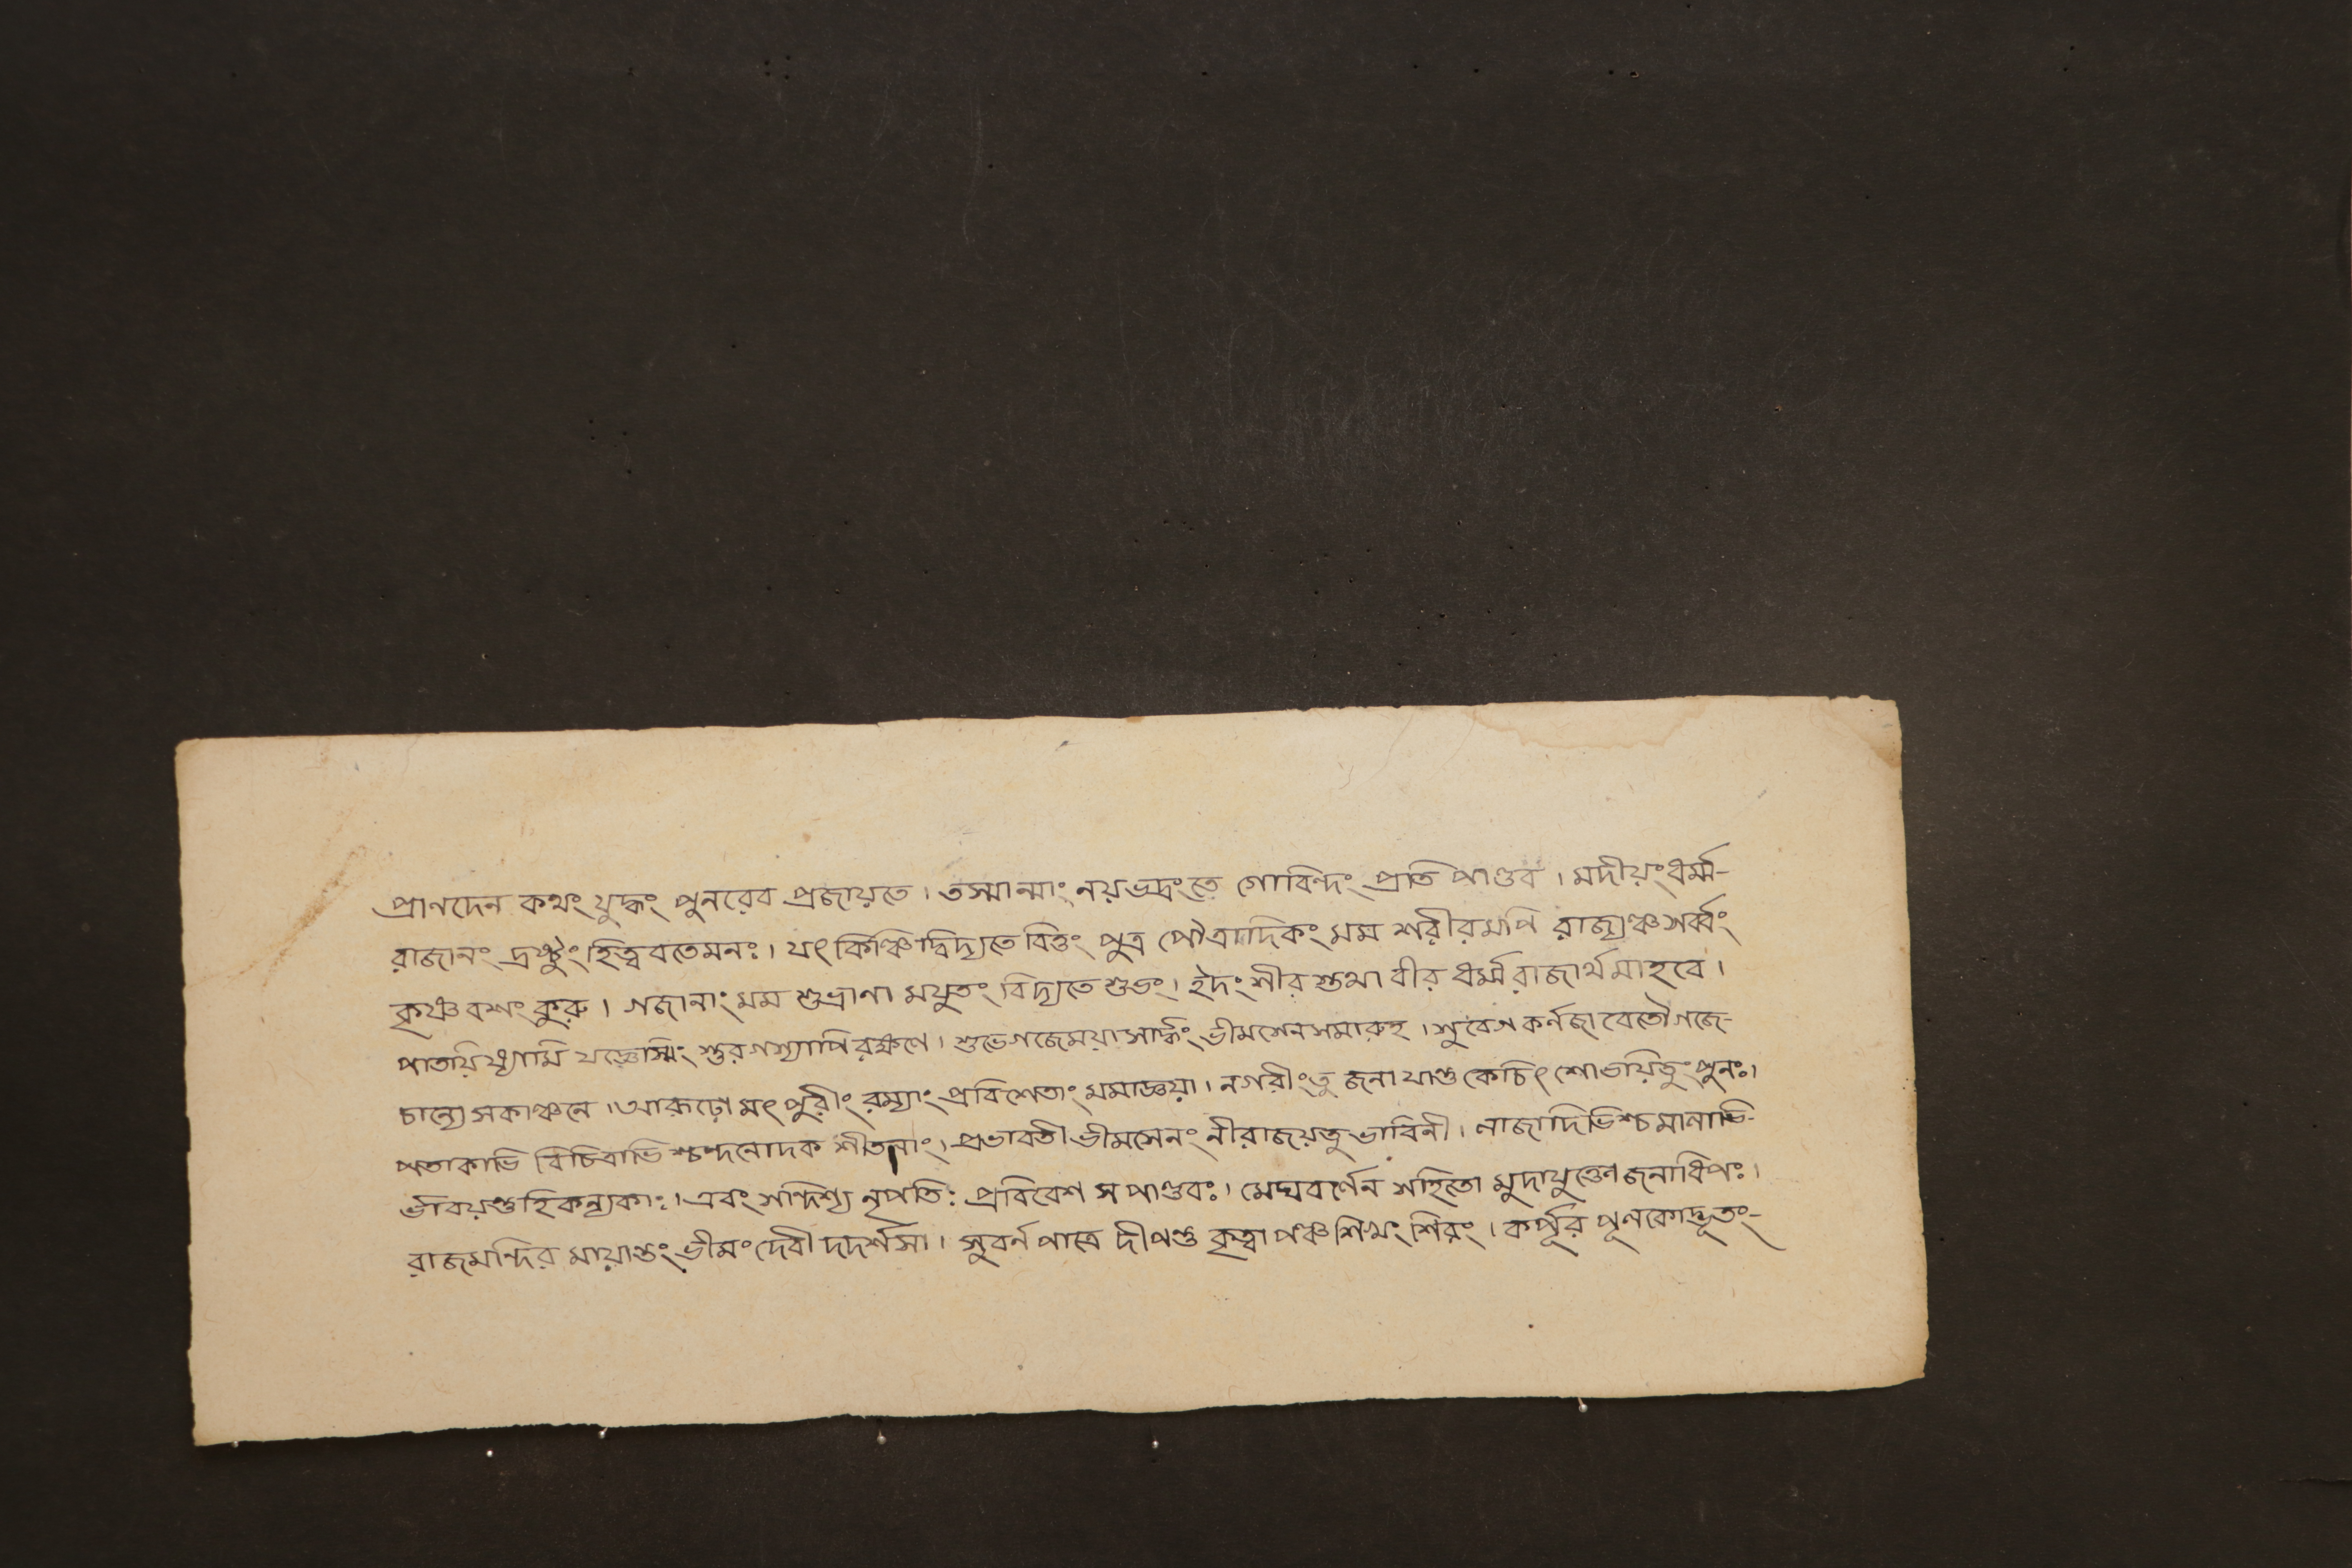 প্রাণদেন কথং যুদ্ধং পুনরেব প্রজায়তে। তস্মান্মাং নয়ভদ্রংতে গোবিন্দং প্রতি পাণ্ডব। মদীয়ংধর্ম্ম-
রাজানং দ্রষ্টুংহিত্বরতেমনঃ। যৎ কিঞ্চিদ্বিদ্যতে বিত্তং পুত্র পৌত্রাদিকং মম শরীরমপি রাজ্যঞ্চসর্ব্বং
কৃষ্ণবশং কুরু। গজানাং মম শুভ্রাণা মযুতং বিদ্যতে শুভং। ইদংশীর স্তথা বীর ধর্ম্মরাজার্থমাহবে।
পাতয়িষ্যামি যজ্ঞেস্মিং স্তুরগস্যাপিরক্ষণে। শুভেগজেময়াসার্দ্ধং ভীমশেনসমারুহ। সুবেগ কর্নজাবেতৌগজে-
চান্যেসকাঞ্চনে। আরূঢ়ো মৎপুরীং রম্যাং প্রবিশেতাং মমাজ্ঞয়া। নগরীংতু জনা যান্তু কেচিৎ শোভয়িতুং পুনঃ।
পতাকাভি বিচিত্রাভি শ্চন্দনোদক শীতলাং। প্রভাবতী ভীমসেনং নীরাজয়তুভাবিনী। লাজাদিভিশ্চমানাভি-
র্ভাবয়ন্তুহিকন্যকাঃ। এবং সন্দিশ্য নৃপতিঃ প্রবিবেশ স পাণ্ডবঃ। মেঘবর্ণেন সহিতো মুদাযুক্তোজনাধিপঃ।
রাজমন্দির মায়ান্তং ভীমং দেবী দদর্শসা। সুবর্নপাত্রে দীপন্তু কৃত্বাপঞ্চশিখং শিরং। কর্পূর পূলকোদ্ভূতং-